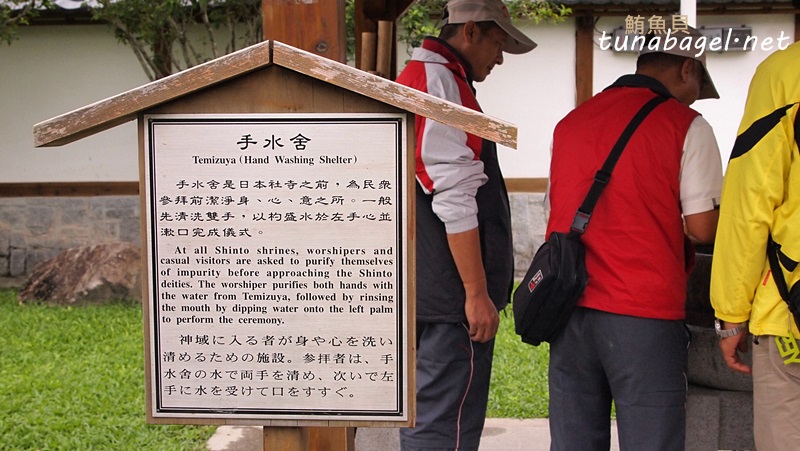 鮪魚貝
tunabagel.net
手水舍
Temizuya (Hand Washing Shelter)
手水舍是日本社寺之前，為民眾
參拜前潔淨身、心、意之所。一般
先清洗雙手，以杓盛水於左手心並
漱口完成儀式。
At all Shinto shrines, worshipers and
casual visitors are asked to purify themselves
of impurity before approaching the Shinto
deities. The worshiper purifies both hands with
the water from Temizuya, followed by rinsing
the mouth by dipping water onto the left palm
to perform the ceremony.
神域に入る者が身や心を洗い
清めるための施設。参拝者は、手
水舍の水で両手を清め、次いで左
手に水を受けて口をすすぐ。